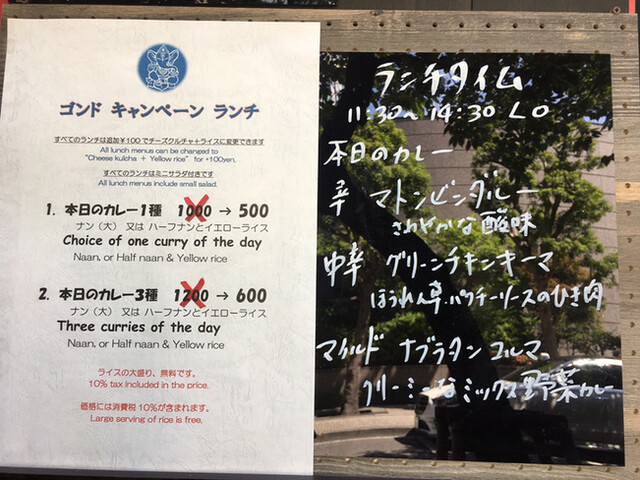 ゴンド キャンペーン ランチ
すべてのランチは追加￥100でチーズクルチャ+ライスに変更できます
All lunch menus can be changed to
"Cheese kulcha + Yellow rice" for +100yen.
すべてのランチはミニサラダ付きです
All lunch menus include small salad.
1. 本日のカレー1種 1000 → 500
ナン（大）又は ハーフナンとイエローライス
Choice of one curry of the day
Naan, or Half naan & Yellow rice
2. 本日のカレー3種 1200 → 600
ナン（大）又は ハーフナンとイエローライス
Three curries of the day
Naan, or Half naan & Yellow rice
ライスの大盛り、無料です。
10% tax included in the price.
価格には消費税 10%が含まれます。
Large serving of rice is free.
ランチタイム
11:30〜14:30 LO
本日のカレー
辛 マトンビンダルー
さわやかな酸味
中辛 グリーンチキンキーマ
ほうれん草・パクチーソースのひき肉
マイルド ナブラタン コルマ
クリーミーなミックス野菜カレー